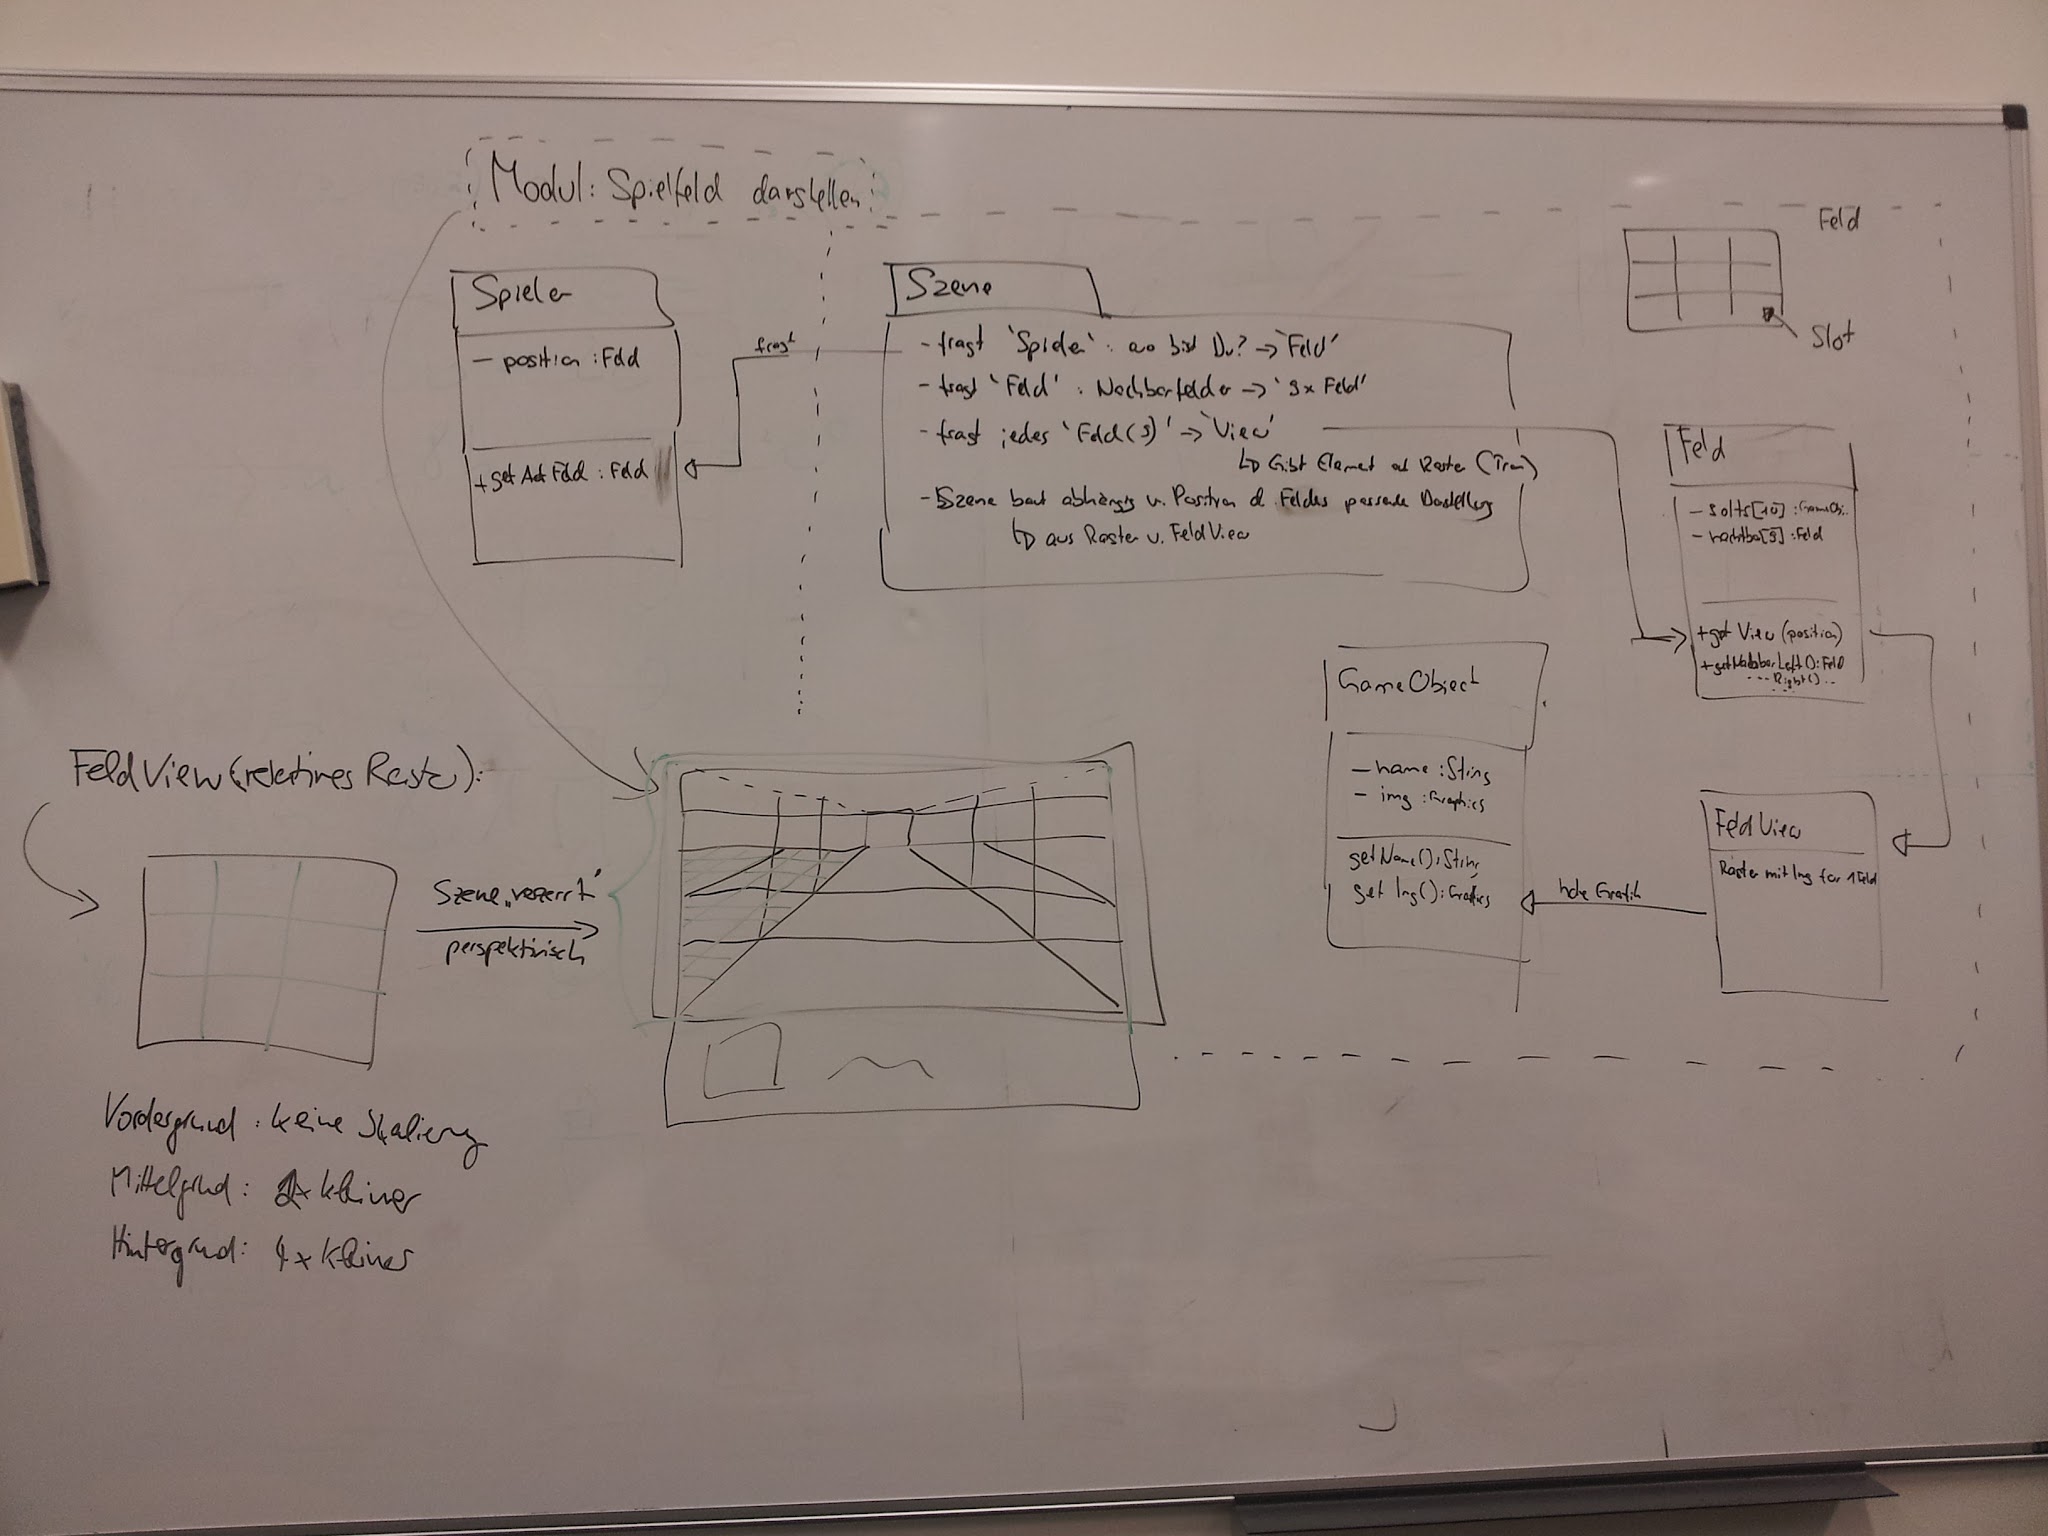 Modul: Spielfeld darstellen
Feld
Slot
Spieler
- position : Feld
+ getAktFeld : Feld
fragt
Szene
- fragt 'Spieler' : wo bist Du? -> 'Feld'
- fragt 'Feld' : Nachbarfelder -> '9x Feld'
- fragt jedes 'Feld(9)' -> 'View'
↳ Gibt Element auf Raster
- Szene baut abhängig v. Position d. Feldes passende Darstellung
↳ aus Raster u. FeldView
Feld
- solts[10] : GameObj.
- nachba[9] : Feld
+ get View (position)
+ getNachbarLeft() : Feld
--- Right() --
GameObject
- name : String
- img : Graphics
getName() : String
get Img() : Grafics
hole Grafik
FeldView
Raster mit Img für 1 Feld
FeldView (relatives Raster):
Szene „verzerrt"
perspektivisch
Vordergrund : keine Skalierung
Mittelgrund : 2x kleiner
Hintergrund : 4x kleiner